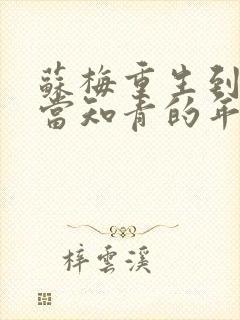 蘇梅重生到
當知青的年
梓雲溪